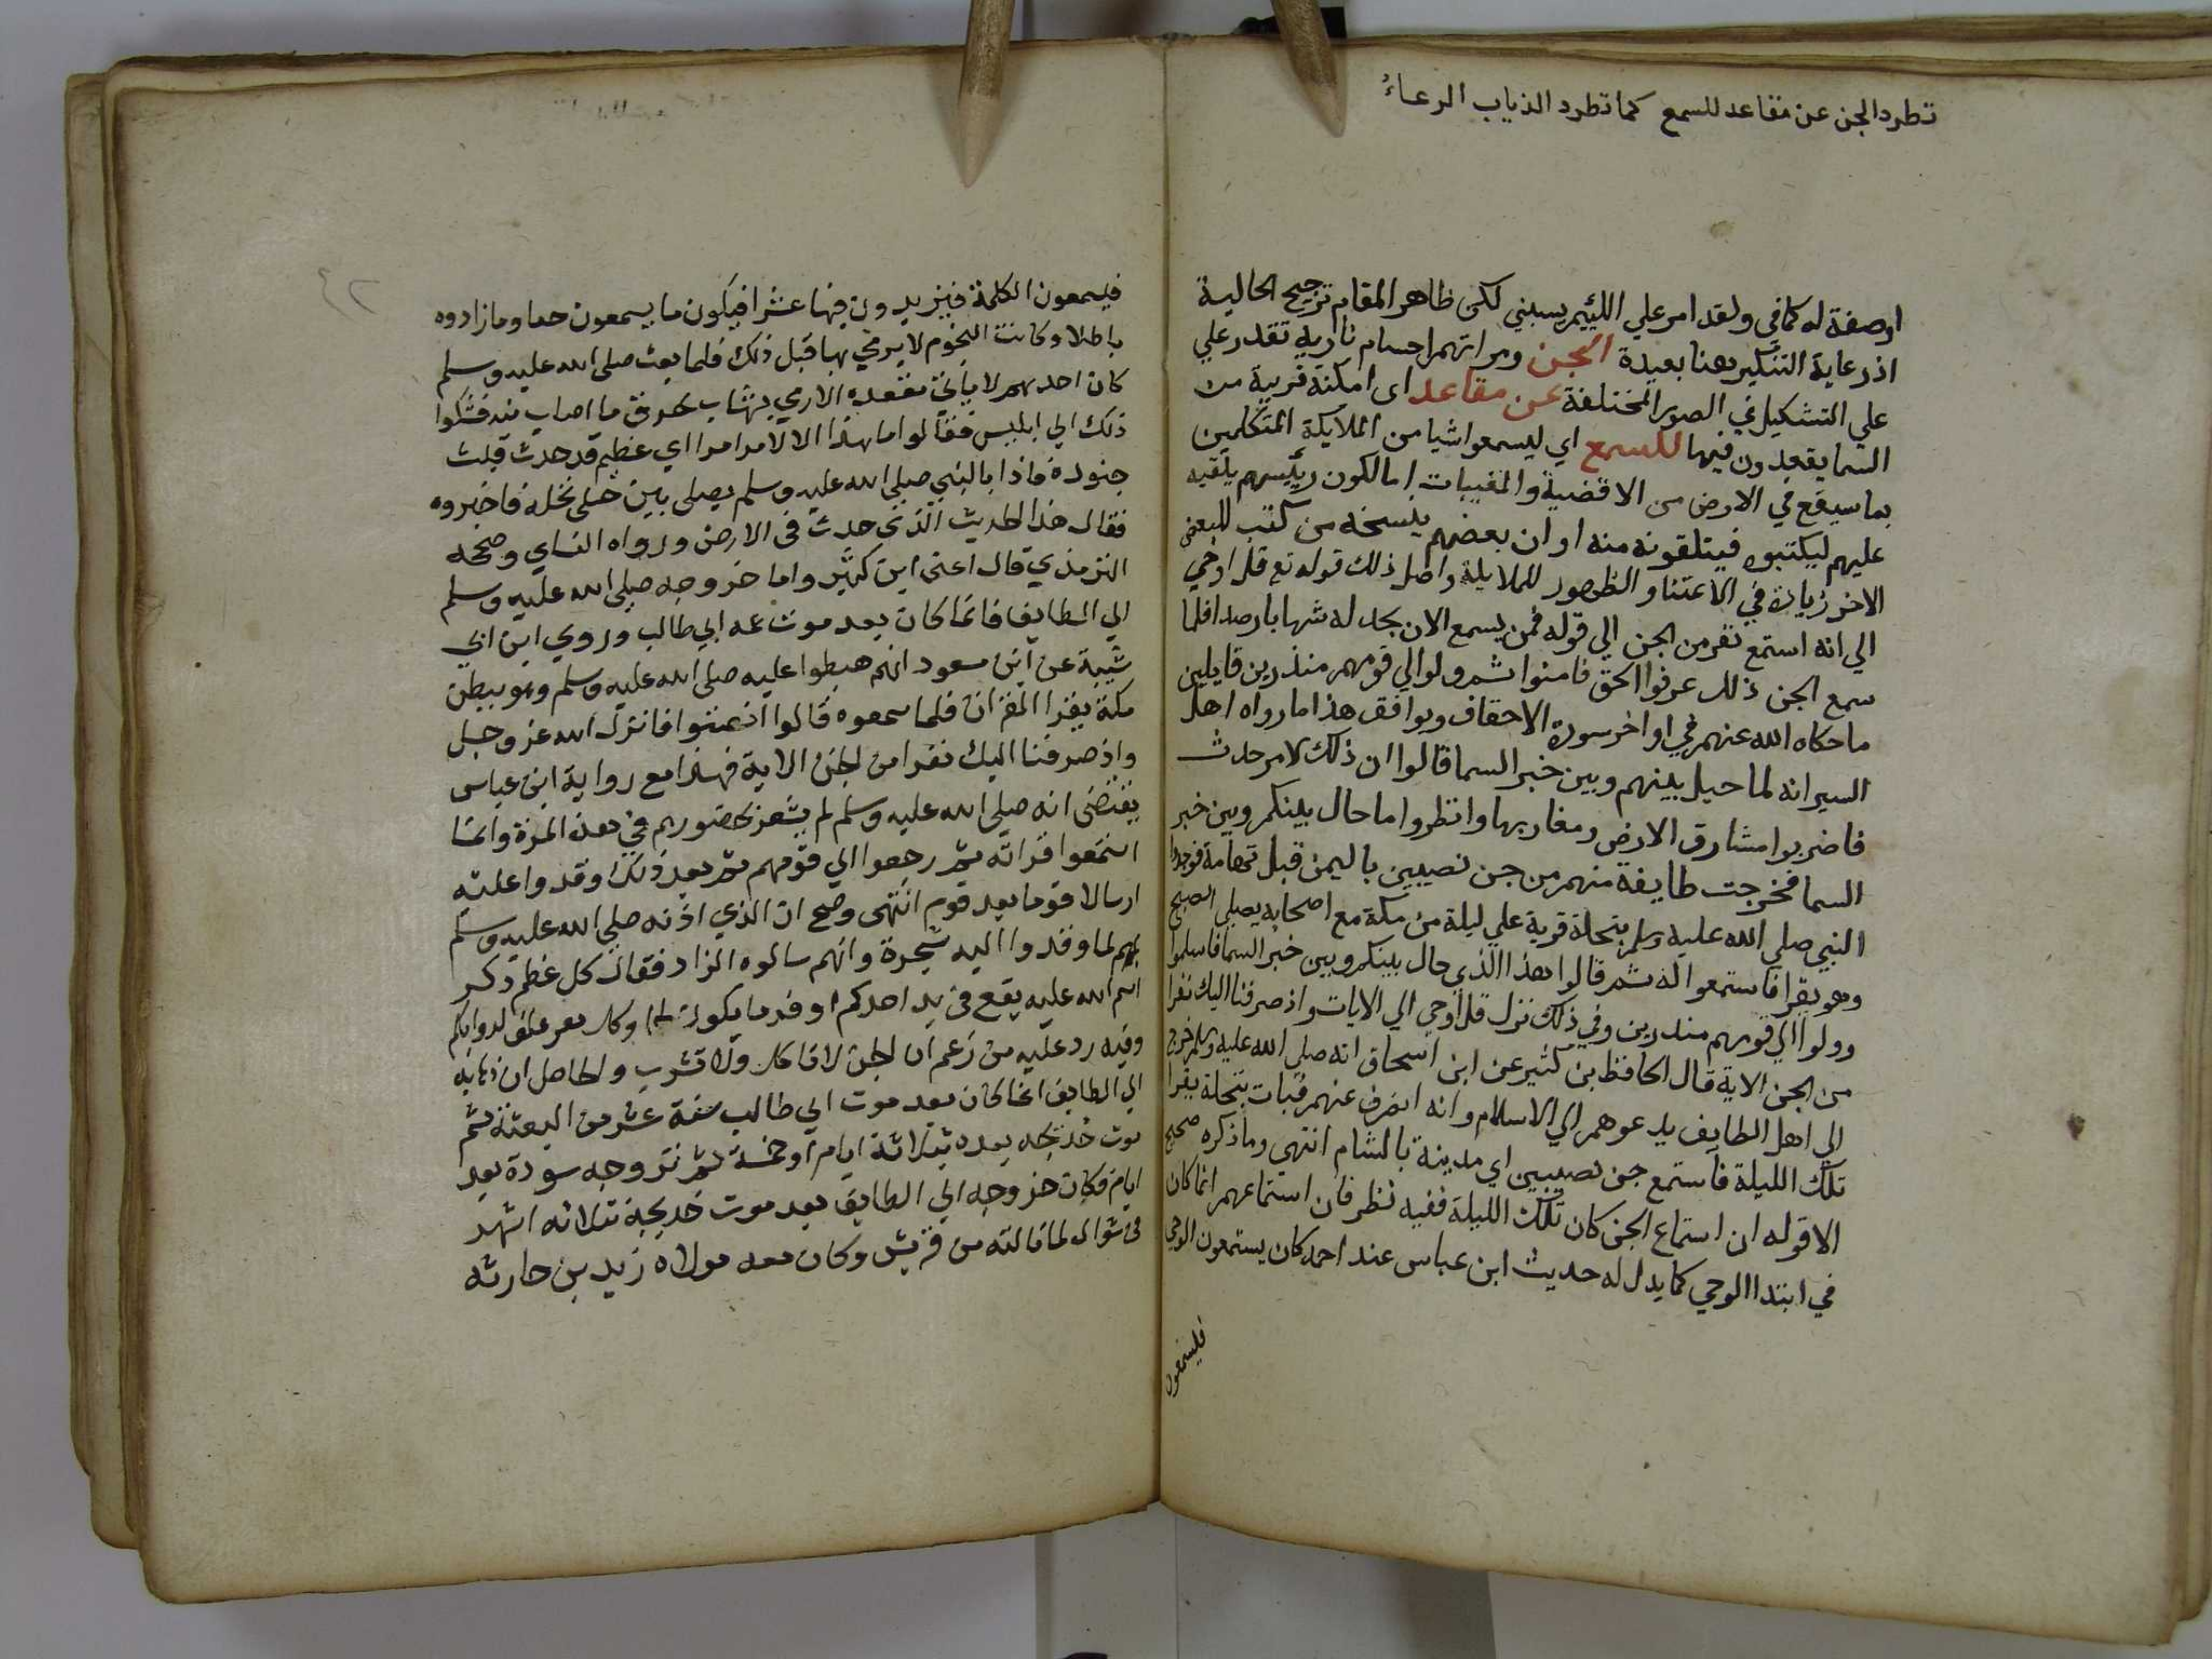 تطرد الجن عن مقاعد للسمع كما تطرد الذياب الرعاءُ
اوصفة له كما في ولقد امر علي اللئيم يسبني لكن ظاهر المقام ترجيح الحالية
اذ رعاية التنكير هنا بعيدة الجن ومر انهم اجسام نارية تقدر علي
علي التشكيل في الصور المختلفة عن مقاعد اى امكنة قريبة من
السما يقعدون فيها للسمع اي ليسمعوا شيا من الملايكة المتكلمين
بما سيقع في الارض من الاقضية والمغيبات اما لكون رييسهم يلقيه
عليهم ليكتبوه فيتلقونه منه او ان بعضهم ينسخه من كتب للبعض
الاخر زيادة في الاعتنا والظهور للملايكة واصل ذلك قوله تع قل اوحي
الي انه استمع نفر من الجن الي قوله فمن يسمع الان يجد له شهابا رصدا فلما
سمع الجن ذلك عرفوا الحق فامنوا ثم ولوا الي قومهم منذرين قايلين
ما حكاه الله عنهم في اواخر سورة الاحقاف ويوافق هذا ما رواه اهل
السير انه لما حيل بينهم وبين خبر السما قالوا ان ذلك لامر حدث
فاضربوا مشارق الارض ومغاربها وانظروا ما حال بينكم وبين خبر
السما فخرجت طايفة منهم من جن نصيبين باليمن قبل تهامة فوجدوا
النبي صلي الله عليه وسلم بنخلة قرية علي ليلة من مكة مع اصحابه يصلي الصبح
وهو يقرا فاستمعوا له ثم قالوا هذا الذى حال بينكم وبين خبر السما فاسلموا
وولوا الي قومهم منذرين وفي ذلك نزل قل اوحي الي الايات واذ صرفنا اليك نفرا
من الجن الاية قال الحافظ بن كثير عن ابن اسحاق انه صلي الله عليه وسلم خرج
الي اهل الطايف يدعوهم الي الاسلام وانه انصرف عنهم فبات بنخلة يقرا
تلك الليلة فاستمع جن نصيبين اي مدينة بالشام انتهى وما ذكره صحيح
الا قوله ان استماع الجن كان تلك الليلة ففيه نظر فان استماعهم انما كان
في ابتدا الوحي كما يدل له حديث ابن عباس عند احمد كان يستمعون الوحي
فيسمعون
٤٢
فيسمعون الكلمة فيزيدون فيها عشرا فيكون ما يسمعون حقا وما زادوه
باطلا وكانت النجوم لا يرمي بها قبل ذلك فلما بعث صلى الله عليه وسلم
كان احدهم لا ياتي مقعده الا رمي بشهاب يحرق ما اصاب منه فشكوا
ذلك الي ابليس فقالوا ما هذا الا لامر امرا اي عظيم قد حدث فبث
جنوده فاذا بالنبي صلي الله عليه وسلم يصلى بين جبلى نخلة فاخبروه
فقال هذا الحديث الذى حدث في الارض ورواه النساي وصححه
الترمذي قال اعنى ابن كثير واما خروجه صلي الله عليه وسلم
الي الطايف فانما كان بعد موت عمه ابي طالب وروي ابن ابي
شيبة عن ابن مسعود انهم هبطوا عليه صلى الله عليه وسلم وهو ببطن
مكة يقرا القران فلما سمعوه قالوا انصتوا فانزل الله عز وجل
واذ صرفنا اليك نفرا من الجن الاية فهذا مع رواية ابن عباس
يقتضى انه صلي الله عليه وسلم لم يشعر بحضورهم في هذه المرة وانما
استمعوا قراته ثم رجعوا الي قومهم ثم بعد ذلك وفدوا عليه
ارسالا قوما بعد قوم انتهى وصح ان الذي اذنه صلي الله عليه وسلم
بهم لما وفدوا اليه شجرة وانهم سالوه الزاد فقال كل عظم ذكر
اسم الله عليه يقع في يد احدكم اوفر ما يكون لحما وكل بعر علف لدوابكم
وفيه رد عليه من زعم ان الجن لا تاكل ولا تشرب والحاصل ان ذهابه
الي الطايف انما كان بعد موت ابي طالب سنة عشر من البعثة ثم
موت خديجه بعده بثلاثة ايام او خمسة ثم تزوجه سودة بعد
ايام فكان خروجه الي الطايف بعد موت خديجة بثلاثه اشهر
فى شوال لما نالته من قريش وكان معه مولاه زيد بن حارثه